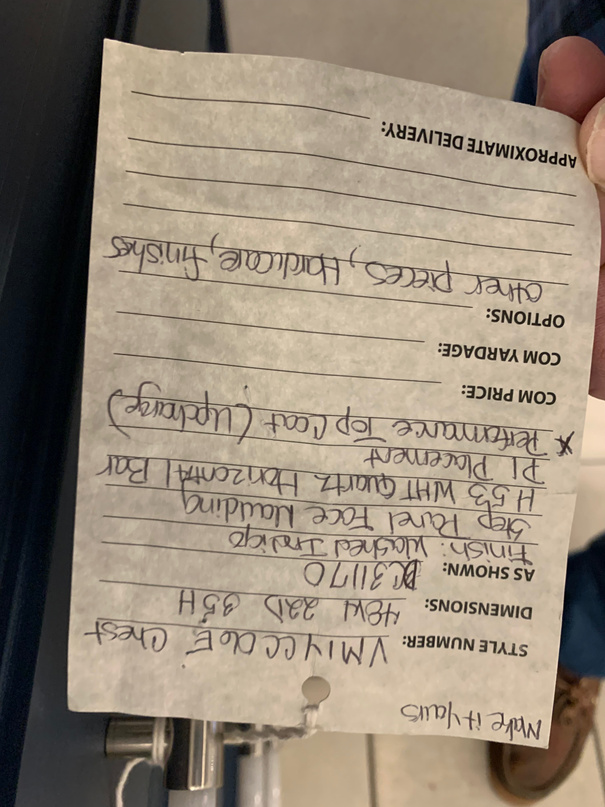 Make it Yours
STYLE NUMBER: VM14CC06E Chest
DIMENSIONS: 48W 22D 35H
AS SHOWN: DC31170
Finish: Washed Indigo
Step Panel Face Moulding
H53 WHT Quartz Horizontal Bar
P1 Placement
* Performance Top Coat (Upcharge)
COM PRICE:
COM YARDAGE:
OPTIONS:
other pieces, Hardware, finishes
APPROXIMATE DELIVERY: